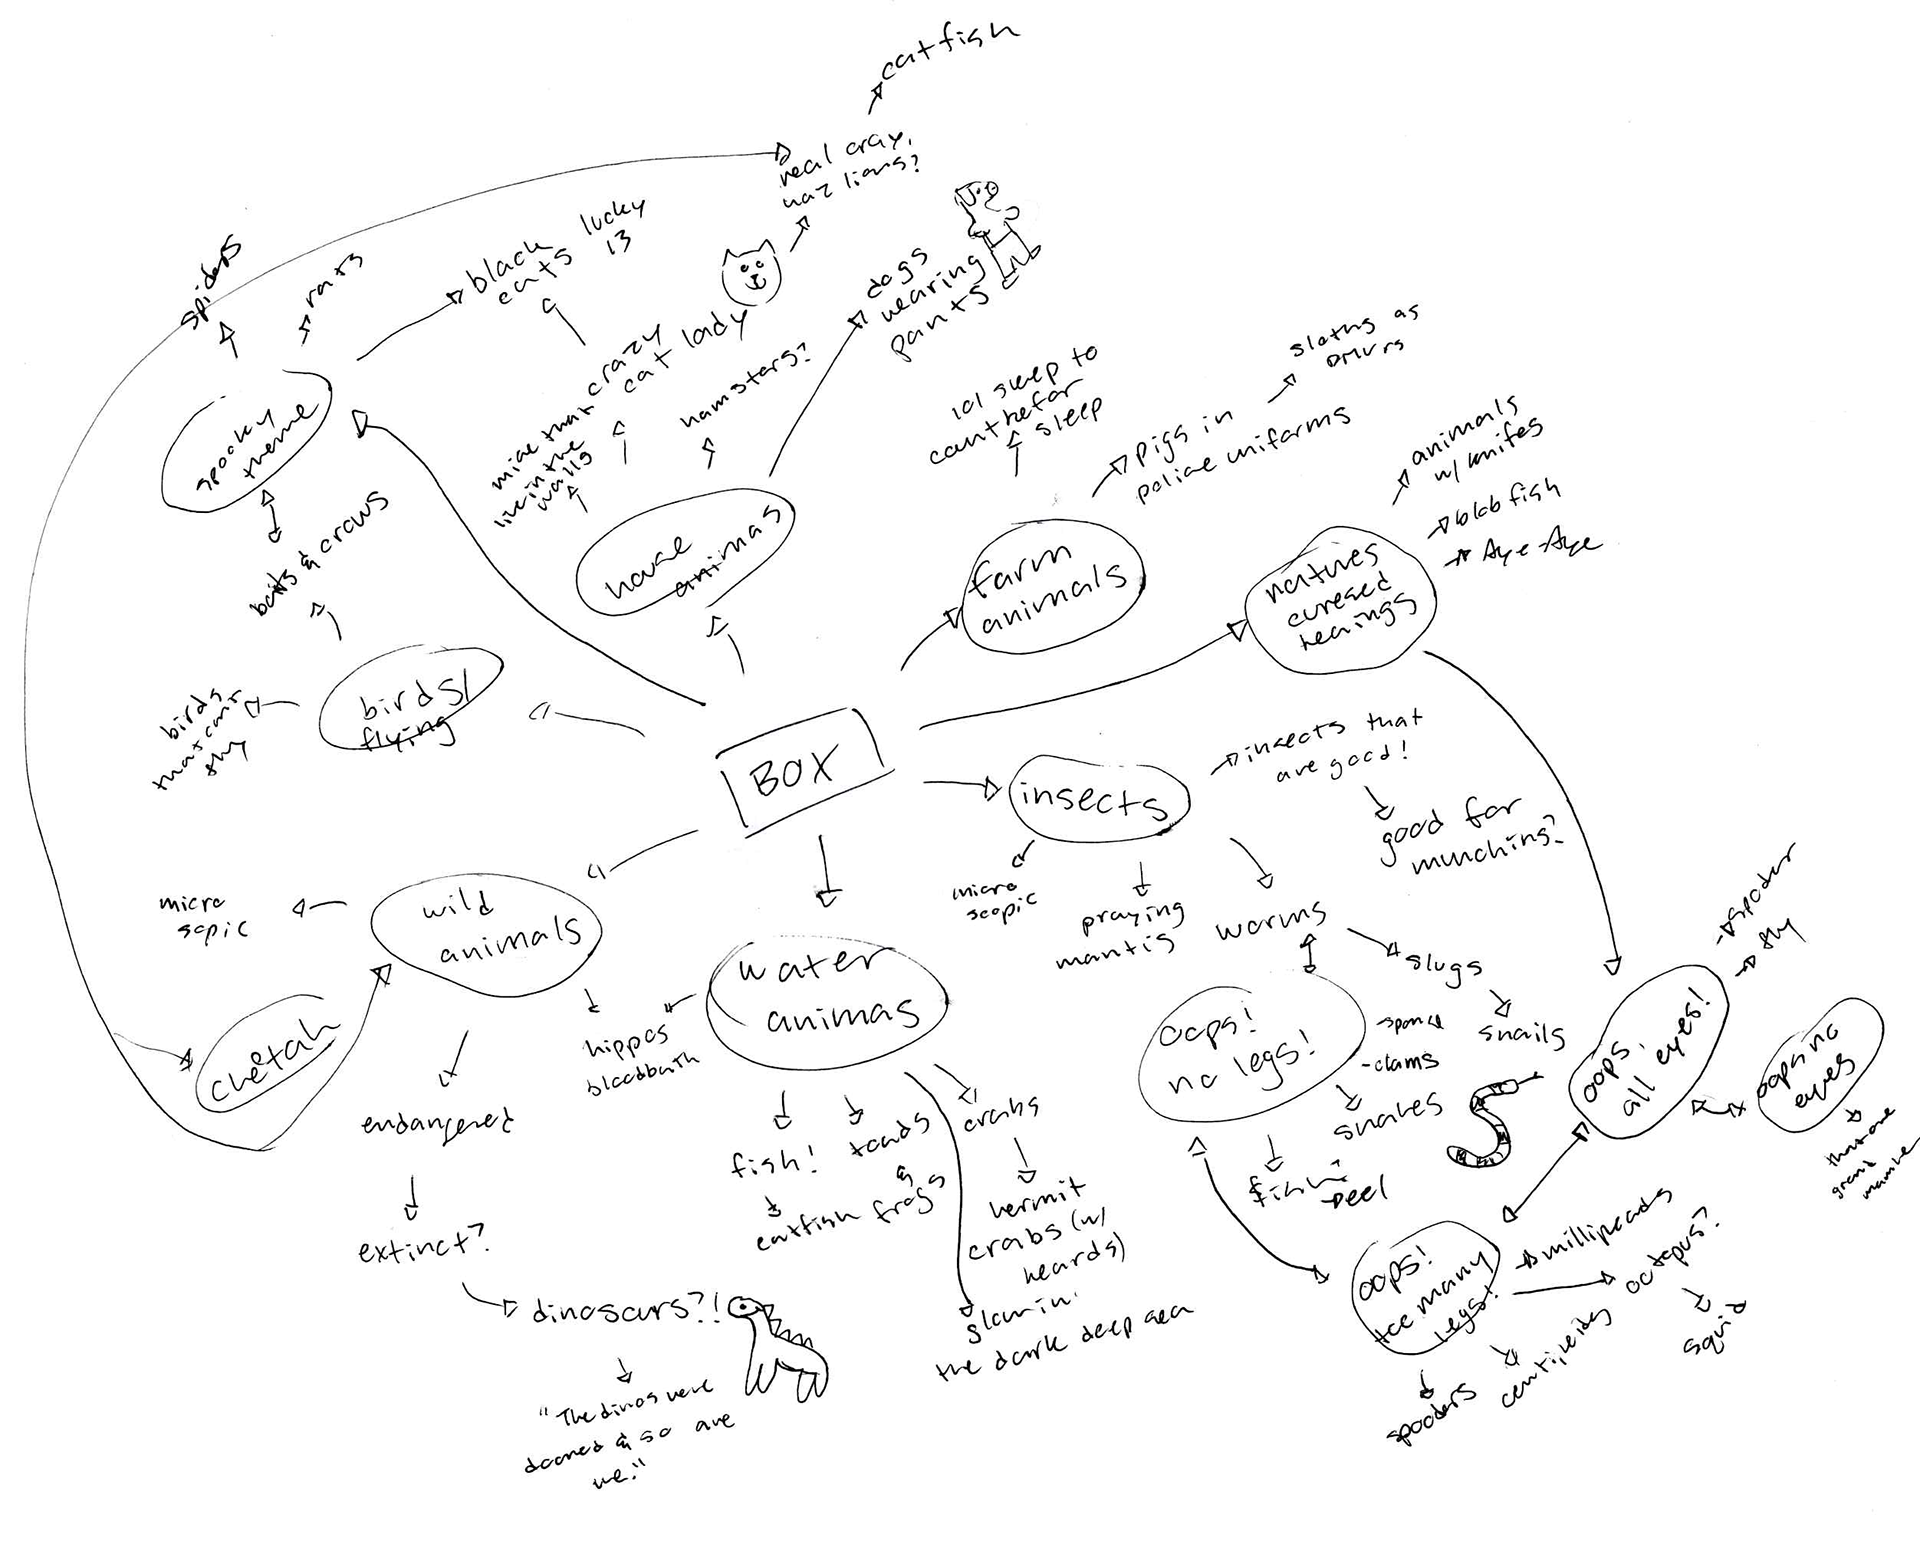 catfish
real cray.
haz lions?
lucky
13
black
cats
spiders
rats
dogs
wearing
pants
crazy
cat lady
hamsters?
mice that
live in the
walls
spooky
theme
bats & crows
house
animas
lol sleep to
count befor
sleep
pigs in
police uniforms
sloths as
DMVrs
farm
animals
animals
w/ knifes
blob fish
Aye-Aye
natures
curesed
beings
birds/
flying
birds
that can't
fly
BOX
insects
insects that
are good!
good for
munching?
micro
scopic
praying
mantis
worms
slugs
snails
wild
animals
micro
scpic
chetah
endangered
extinct?
dinosaurs?!
"The dinos were
doomed & so are
we."
hippos
bloodbath
water
animas
fish!
catfish
toads
&
frogs
crabs
hermit
crabs (w/
beards)
glowin'
the dark deep sea
oops!
no legs!
sponge
-clams
snakes
fish
eel
oops,
all eyes!
spooder
fly
oops no
eyes
that one
oops!
toe many
legs!
millipeads
octopus?
squid
centipeids
spooders